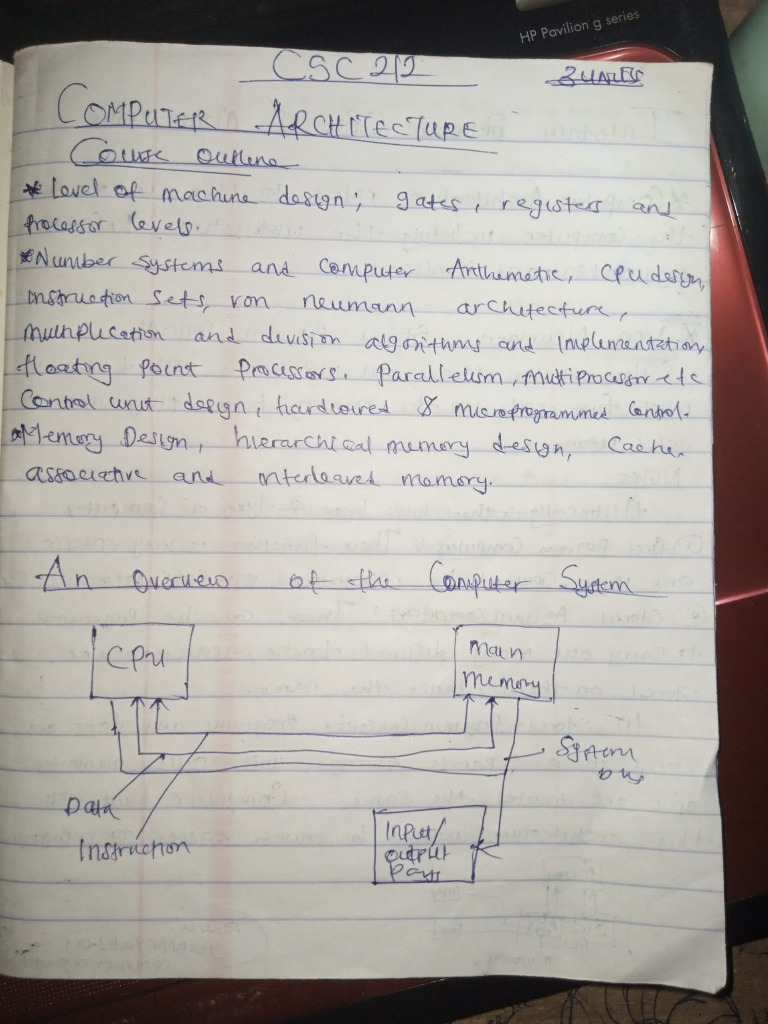 HP Pavilion g series
CSC 212
3 UNITS
COMPUTER ARCHITECTURE
Course outline
* Level of machine design; gates, registers and
processor levels.
* Number systems and Computer Arithemetic, CPU design,
instruction sets, von neumann architecture,
multiplication and division algorithms and Implementation,
floating point processors. parallelism, multiprocessor etc
Control unit design, hardwired & microprogrammed Control.
* Memory Design, hierarchical memory design, Cache,
associative and interleaved memory.
An Overview of the Computer System
CPU
Main
memory
System
bus
Data
Instruction
Input/
output